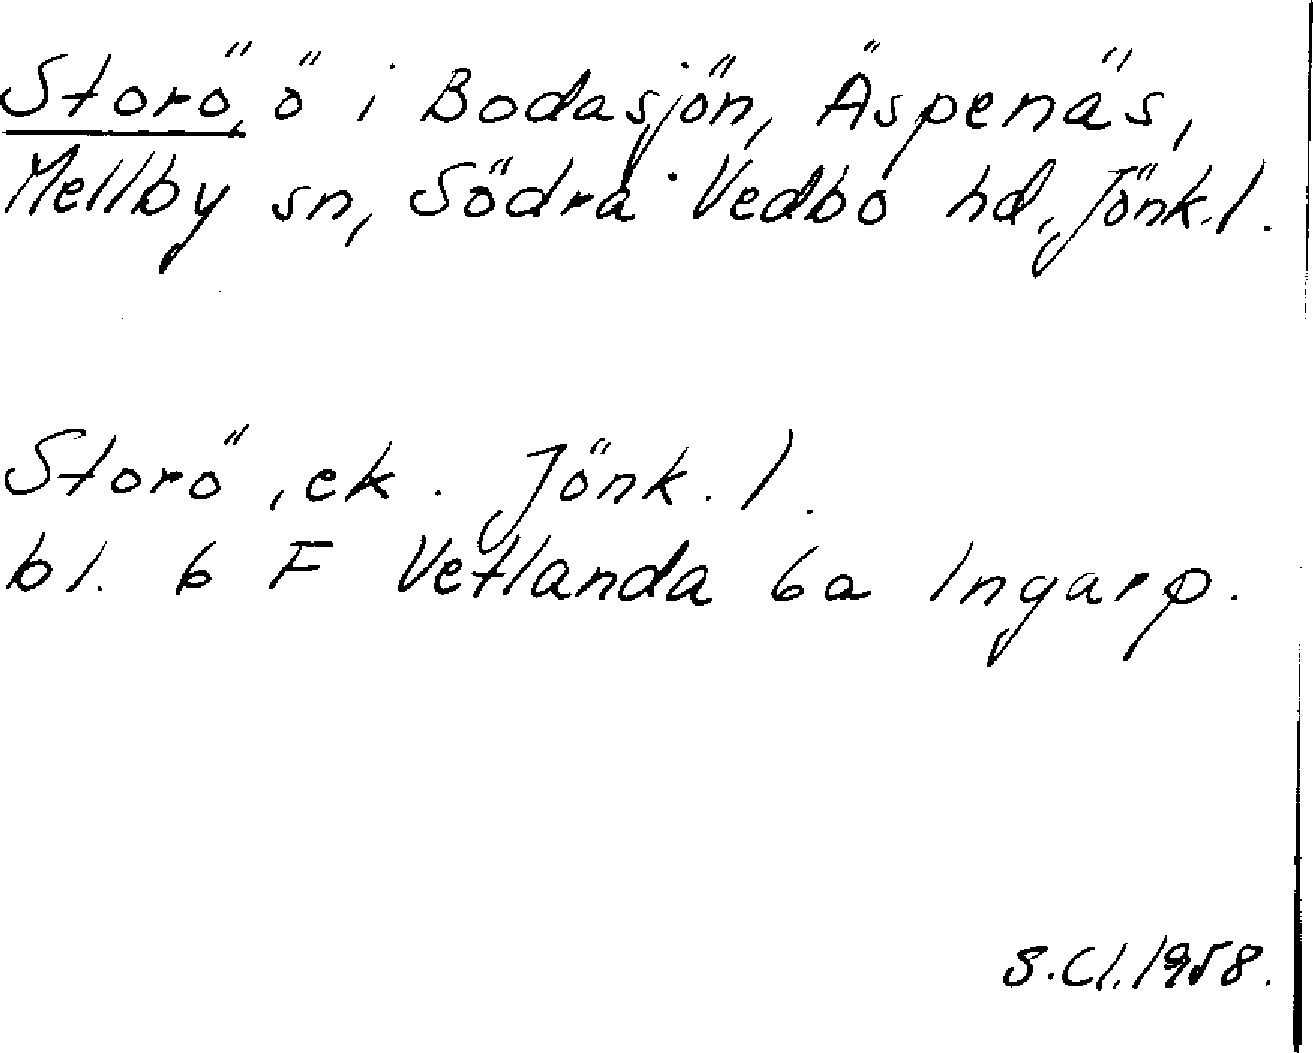 Storö, ö i Bodasjön, Äspenäs,
Mellby sn, Södra Vedbo hd, Jönk.l.
Storö, ek. Jönk.l.
bl. 6 F Vetlanda 6a Ingarp.
S.Cl.1958.